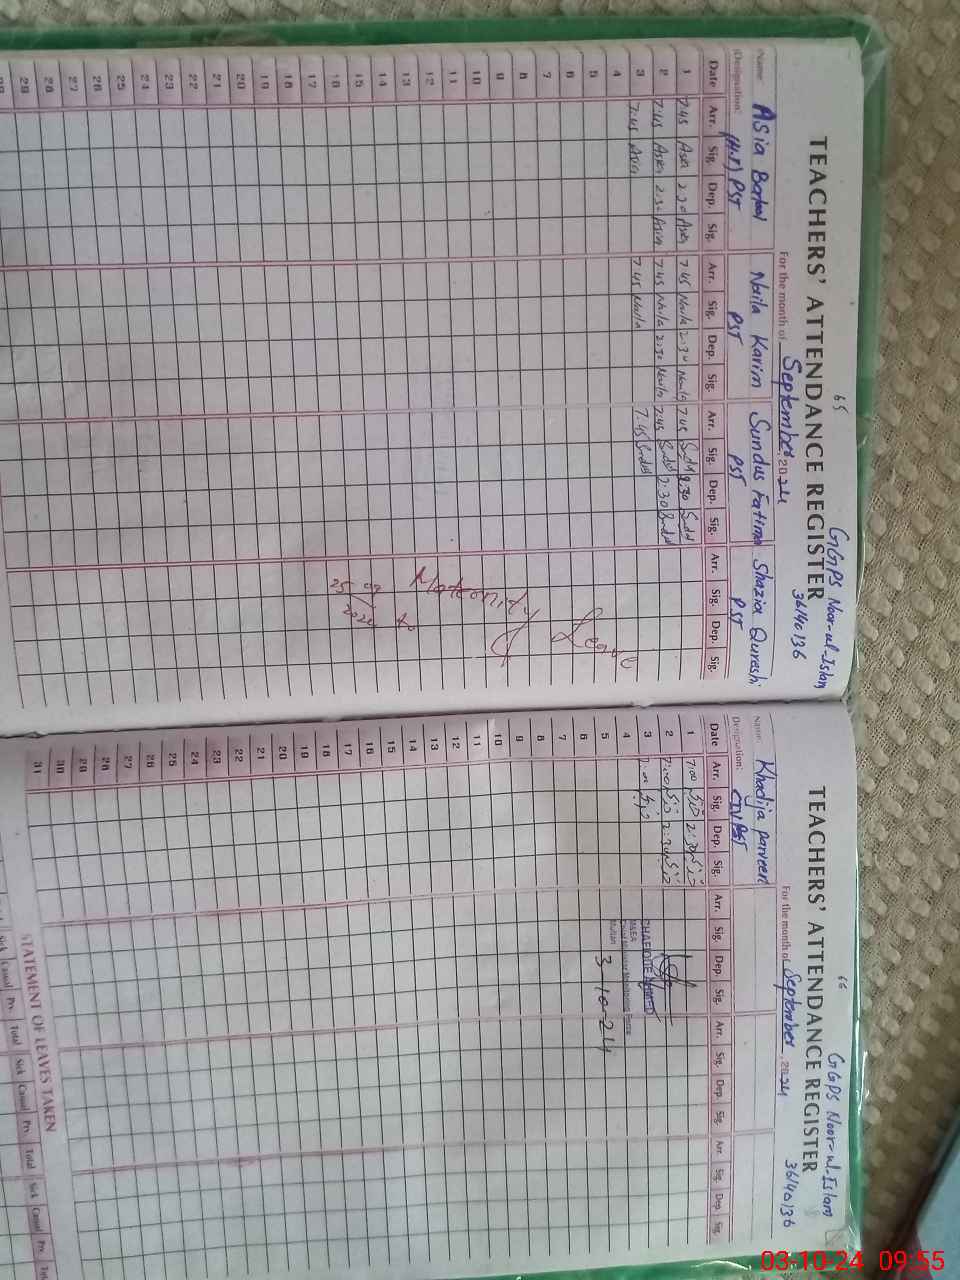 65
GGPS Noor-ul-Islam
TEACHERS' ATTENDANCE REGISTER
36140136
For the month of September, 2024
Name: Asia Batool Naila Karim Sundus Fatima Shazia Qureshi
Designation: (H.T) PST PST PST PST
Date Arr. Sig. Dep. Sig. Arr. Sig. Dep. Sig. Arr. Sig. Dep. Sig. Arr. Sig. Dep. Sig.
1 7:45 Asia 2:30 Asia 7:45 Naila 2:30 Naila 7:45 2:30
2 7:45 Asia 2:30 Asia 7:45 Naila 2:30 Naila 7:45 2:30
3 7:45 Asia 7:45 Naila 7:45
4
5
6
7
8
9
10
11
12
13
14
15
16
17
18
19
20
21
22
23
24
25
26
27
28
29
Maternity Leave
to
25 09 2024
66
GGPS Noor-ul-Islam
TEACHERS' ATTENDANCE REGISTER
36140136
For the month of September, 2024
Name: Khadija Parveen
Designation: PST
Date Arr. Sig. Dep. Sig. Arr. Sig. Dep. Sig. Arr. Sig. Dep. Sig. Arr. Sig. Dep. Sig.
1 7:00 2:30
2 7:00 2:30
3 7:00
4
5
6
7
8
9
10
11
12
13
14
15
16
17
18
19
20
21
22
23
24
25
26
27
28
29
30
31
M&EA
Multan
3-10-24
STATEMENT OF LEAVES TAKEN
Sick Casual Prv. Total Sick Casual Prv. Total Sick Casual Prv.
03-10-24 09:55